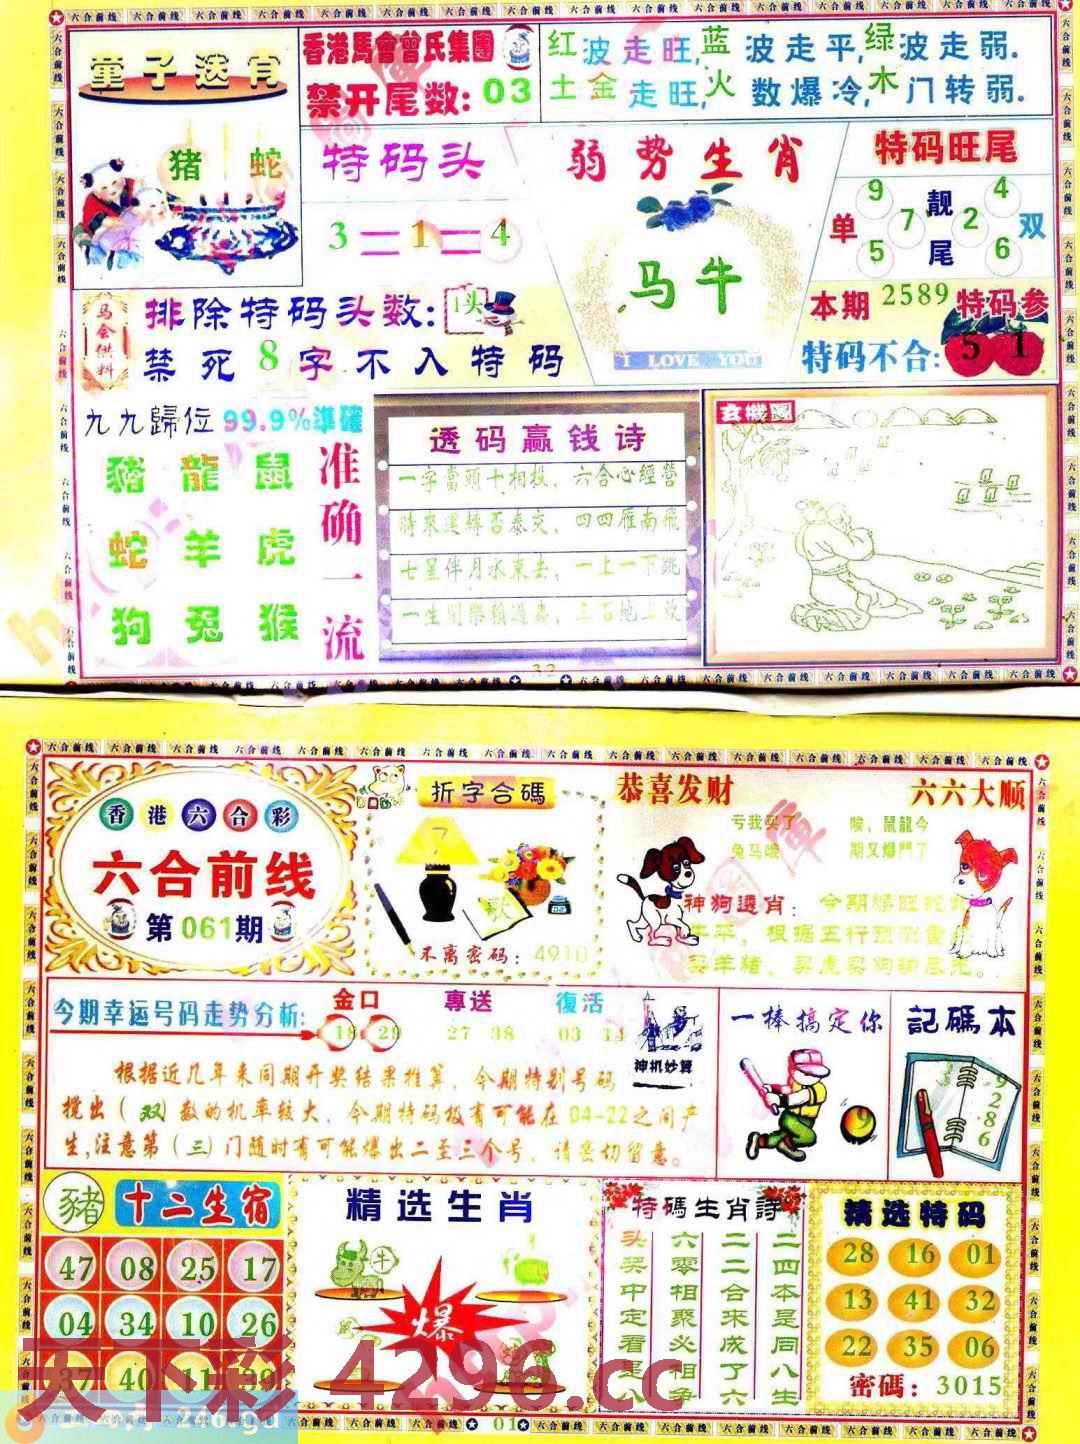 童子送肖
猪 蛇
香港馬會曾氏集團
禁开尾数:03
红波走旺,蓝波走平,绿波走弱.
土金走旺,火数爆冷,木门转弱.
特码头
3=1=4
弱势生肖
马牛
I LOVE YOU
特码旺尾
单 9 7 5 靓尾 4 2 6 双
本期2589特码参
特码不合:51
马会供料
排除特码头数:1头
禁死8字不入特码
九九歸位 99.9%準確
豬龍鼠
蛇羊虎
狗兔猴
准确一流
透码赢钱诗
一字當頭十相投、六合心經營
時來運轉否泰交、四四雁南飛
七星伴月水東去、一上一下跳
玄機圖
32
香港六合彩
六合前线
第061期
折字合碼
7
歌
不离密码:4910
恭喜发财
六六大顺
亏我买了
兔马喂
唉,鼠龍今
期又爆門了
神狗透肖:
今期幸运号码走势分析:
金口 18 29
專送 27 38
復活 03 14
神机妙算
根据近几年来同期开奖结果推算,今期特别号码
搅出(双)数的机率较大,今期特码极有可能在04-22之间产
生,注意第(三)门随时有可能爆出二至三个号,请密切留意。
一棒搞定你
9
記碼本
3
9286
豬
十二生宿
47 08 25 17
04 34 10 26
37 40 11 39
精选生肖
牛
爆
特碼生肖詩
二四本是同八生
二二合来成了六
六零相聚必相争
头奖中定看是八
精选特码
28 16 01
13 41 32
22 35 06
密碼:3015
天下彩4296.cc
01
六合前线